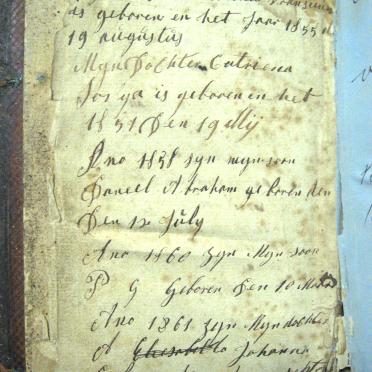 is geboren en het Jaar 1855 d
19 augustus
Myn Dochter Catriena
Josya is geboren en het
1851 Den 19 Mij
Ano 1858 zyn myn soon
Daneel Abraham geboren den
Den 12 July
Ano 1860 zyn Myn soon
P G Geboren Den 10 Maart
Ano 1861 zyn Myn dochter
A Elesabetta Johanna